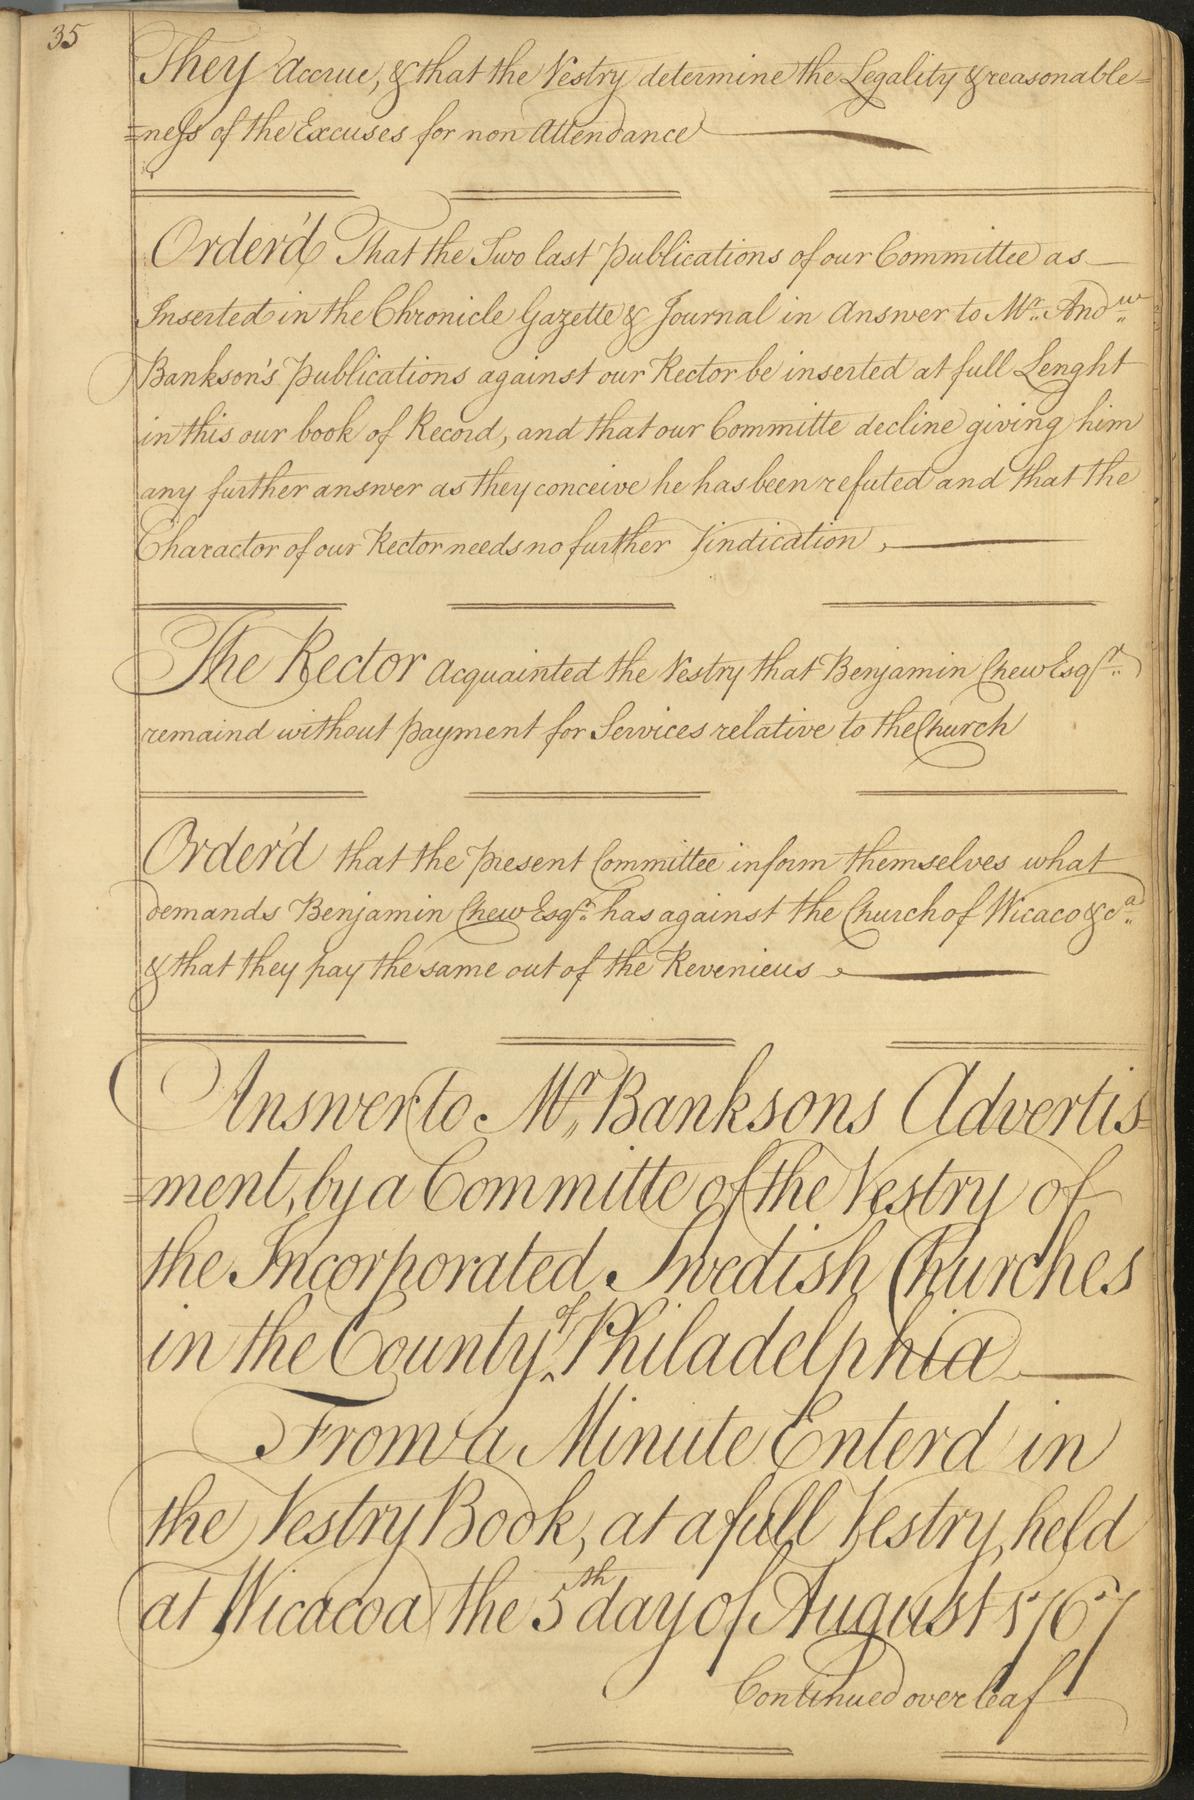 35
They accrue, & that the Vestry determine the Legality & reasonable=
=ness of the Excuses for non Attendance
Order'd That the Two last Publications of our Committee as
Inserted in the Chronicle Gazette & Journal in Answer to Mr. Andw
Bankson's Publications against our Rector be inserted at full Lenght
in this our book of Record, and that our Committe decline giving him
any further answer as they conceive he has been refuted and that the
Charactor of our Rector needs no further Vindication,
The Rector acquainted the Vestry that Benjamin Chew Esqr.
remaind without payment for Services relative to the Church
Order'd that the present Committee inform themselves what
demands Benjamin Chew Esqr. has against the Church of Wicaco &ca
& that they pay the same out of the Revenieus
Answer to Mr. Banksons Advertis=
=ment, by a Committe of the Vestry of
the Incorporated Swedish Churches
in the County ^of Philadelphia
From a Minute Enterd in
the Vestry Book, at a full Vestry held
at Wicacoa the 5th day of August 1767
Continued over leaf